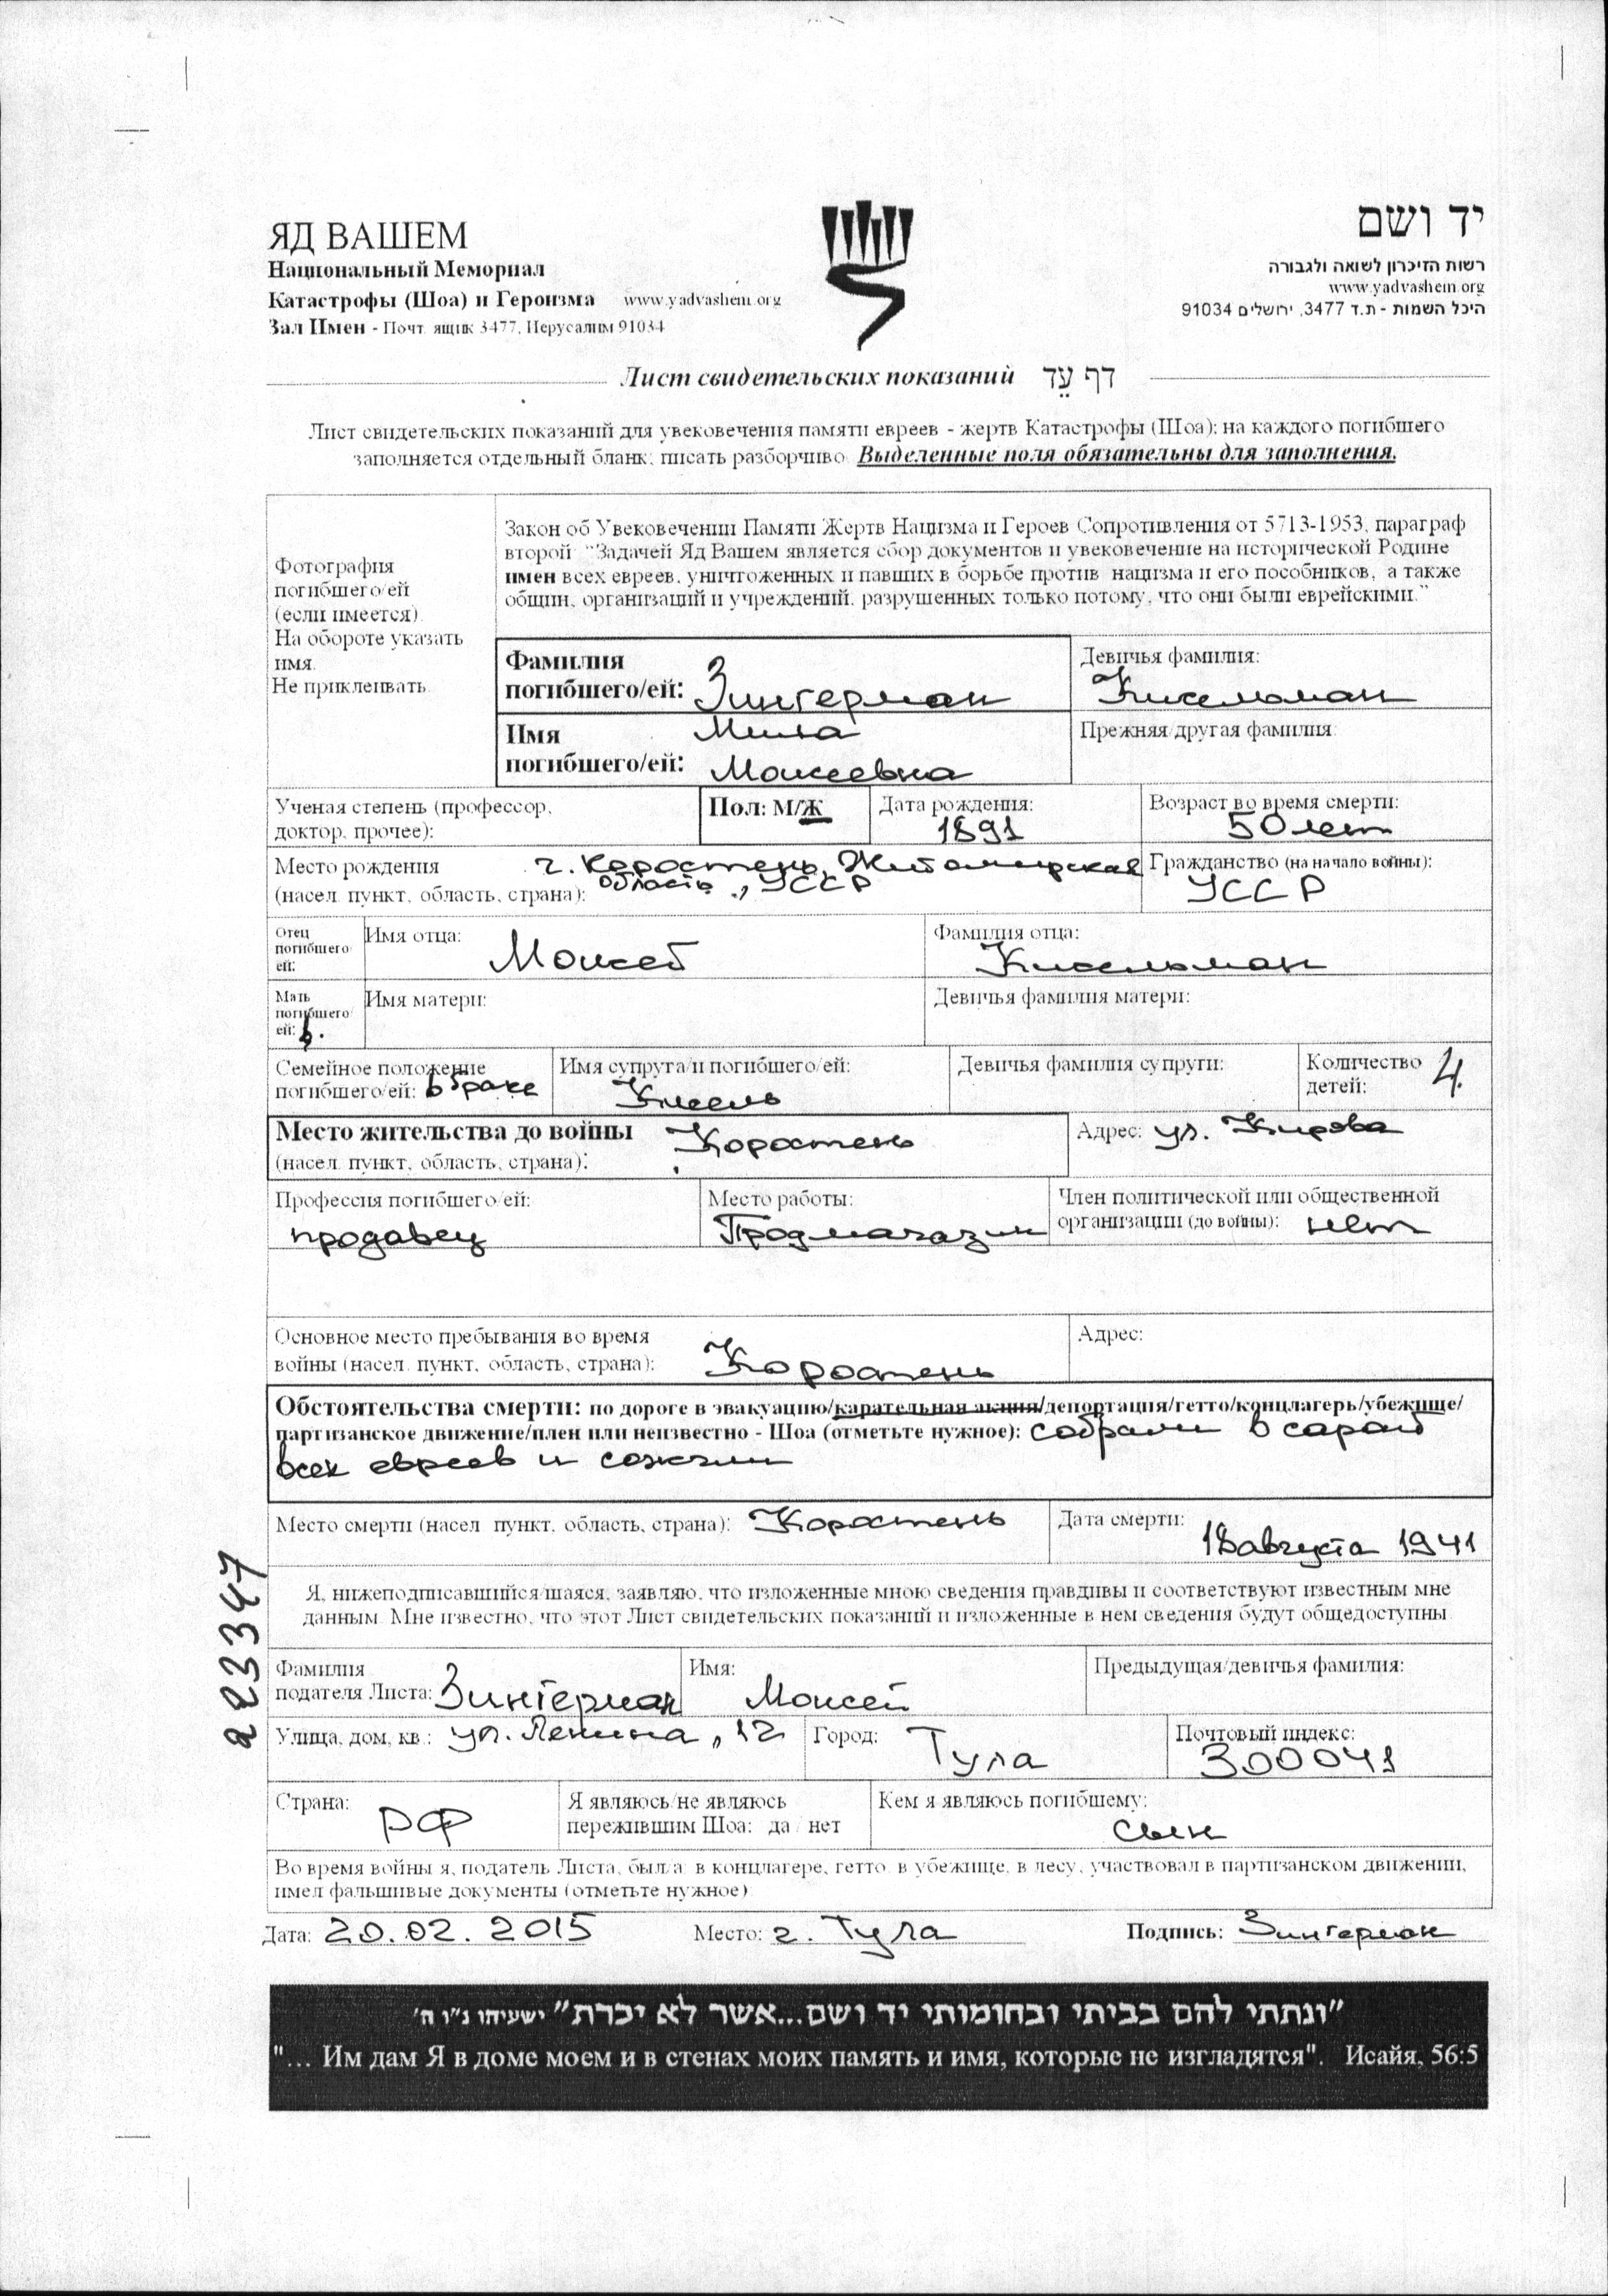 ЯД ВАШЕМ
Национальный Мемориал
Катастрофы (Шоа) и Героизма www.yadvashem.org
Зал Имен - Почт. ящик 3477, Иерусалим 91034
יד ושם
רשות הזיכרון לשואה ולגבורה
www.yadvashem.org
היכל השמות - ת.ד 3477, ירושלים 91034
Лист свидетельских показаний דף עֵד
Лист свидетельских показаний для увековечения памяти евреев - жертв Катастрофы (Шоа): на каждого погибшего
заполняется отдельный бланк; писать разборчиво. Выделенные поля обязательны для заполнения.
Фотография
погибшего/ей
(если имеется).
На обороте указать
имя.
Не приклеивать.
Закон об Увековечении Памяти Жертв Нацизма и Героев Сопротивления от 5713-1953, параграф
второй: "Задачей Яд Вашем является сбор документов и увековечение на исторической Родине
имен всех евреев, уничтоженных и павших в борьбе против нацизма и его пособников, а также
общин, организаций и учреждений, разрушенных только потому, что они были еврейскими."
Фамилия
погибшего/ей: Зингерман
Девичья фамилия:
Кисельман
Имя Мила
погибшего/ей: Моисеевна
Прежняя/другая фамилия:
Ученая степень (профессор,
доктор, прочее):
Пол: М/Ж
Дата рождения:
1891
Возраст во время смерти:
50 лет
Место рождения г. Коростень, Житомирская
(насел. пункт, область, страна): область, УССР
Гражданство (на начало войны):
УССР
Отец
погибшего/
ей:
Имя отца:
Моисей
Фамилия отца:
Кисельман
Мать
погибшего/
ей:
Имя матери:
Девичья фамилия матери:
Семейное положение
погибшего/ей: в браке
Имя супруга/и погибшего/ей:
Кисель
Девичья фамилия супруги:
Количество
детей: 4
Место жительства до войны Коростень
(насел. пункт, область, страна):
Адрес: ул. Кирова
Профессия погибшего/ей:
продавец
Место работы:
Продмагазин
Член политической или общественной
организации (до войны): нет
Основное место пребывания во время
войны (насел. пункт, область, страна): Коростень
Адрес:
Обстоятельства смерти: по дороге в эвакуацию/карательная акция/депортация/гетто/концлагерь/убежище/
партизанское движение/плен или неизвестно - Шоа (отметьте нужное): собрали в сарай
всех евреев и сожгли
Место смерти (насел. пункт, область, страна): Коростень
Дата смерти:
18 августа 1941
Я, нижеподписавшийся/шаяся, заявляю, что изложенные мною сведения правдивы и соответствуют известным мне
данным. Мне известно, что этот Лист свидетельских показаний и изложенные в нем сведения будут общедоступны.
223347
Фамилия
подателя Листа: Зингерман
Имя:
Моисей
Предыдущая/девичья фамилия:
Улица, дом, кв.: ул. Ленина, 12
Город:
Тула
Почтовый индекс:
300041
Страна:
РФ
Я являюсь/не являюсь
пережившим Шоа: да / нет
Кем я являюсь погибшему:
сын
Во время войны я, податель Листа, был/а: в концлагере, гетто, в убежище, в лесу, участвовал в партизанском движении,
имел фальшивые документы (отметьте нужное).
Дата: 20.02.2015 Место: г. Тула Подпись: Зингерман
"ונתתי להם בביתי ובחומותי יד ושם...אשר לא יכרת" ישעיהו נ"ו ה'
"... Им дам Я в доме моем и в стенах моих память и имя, которые не изгладятся". Исайя, 56:5